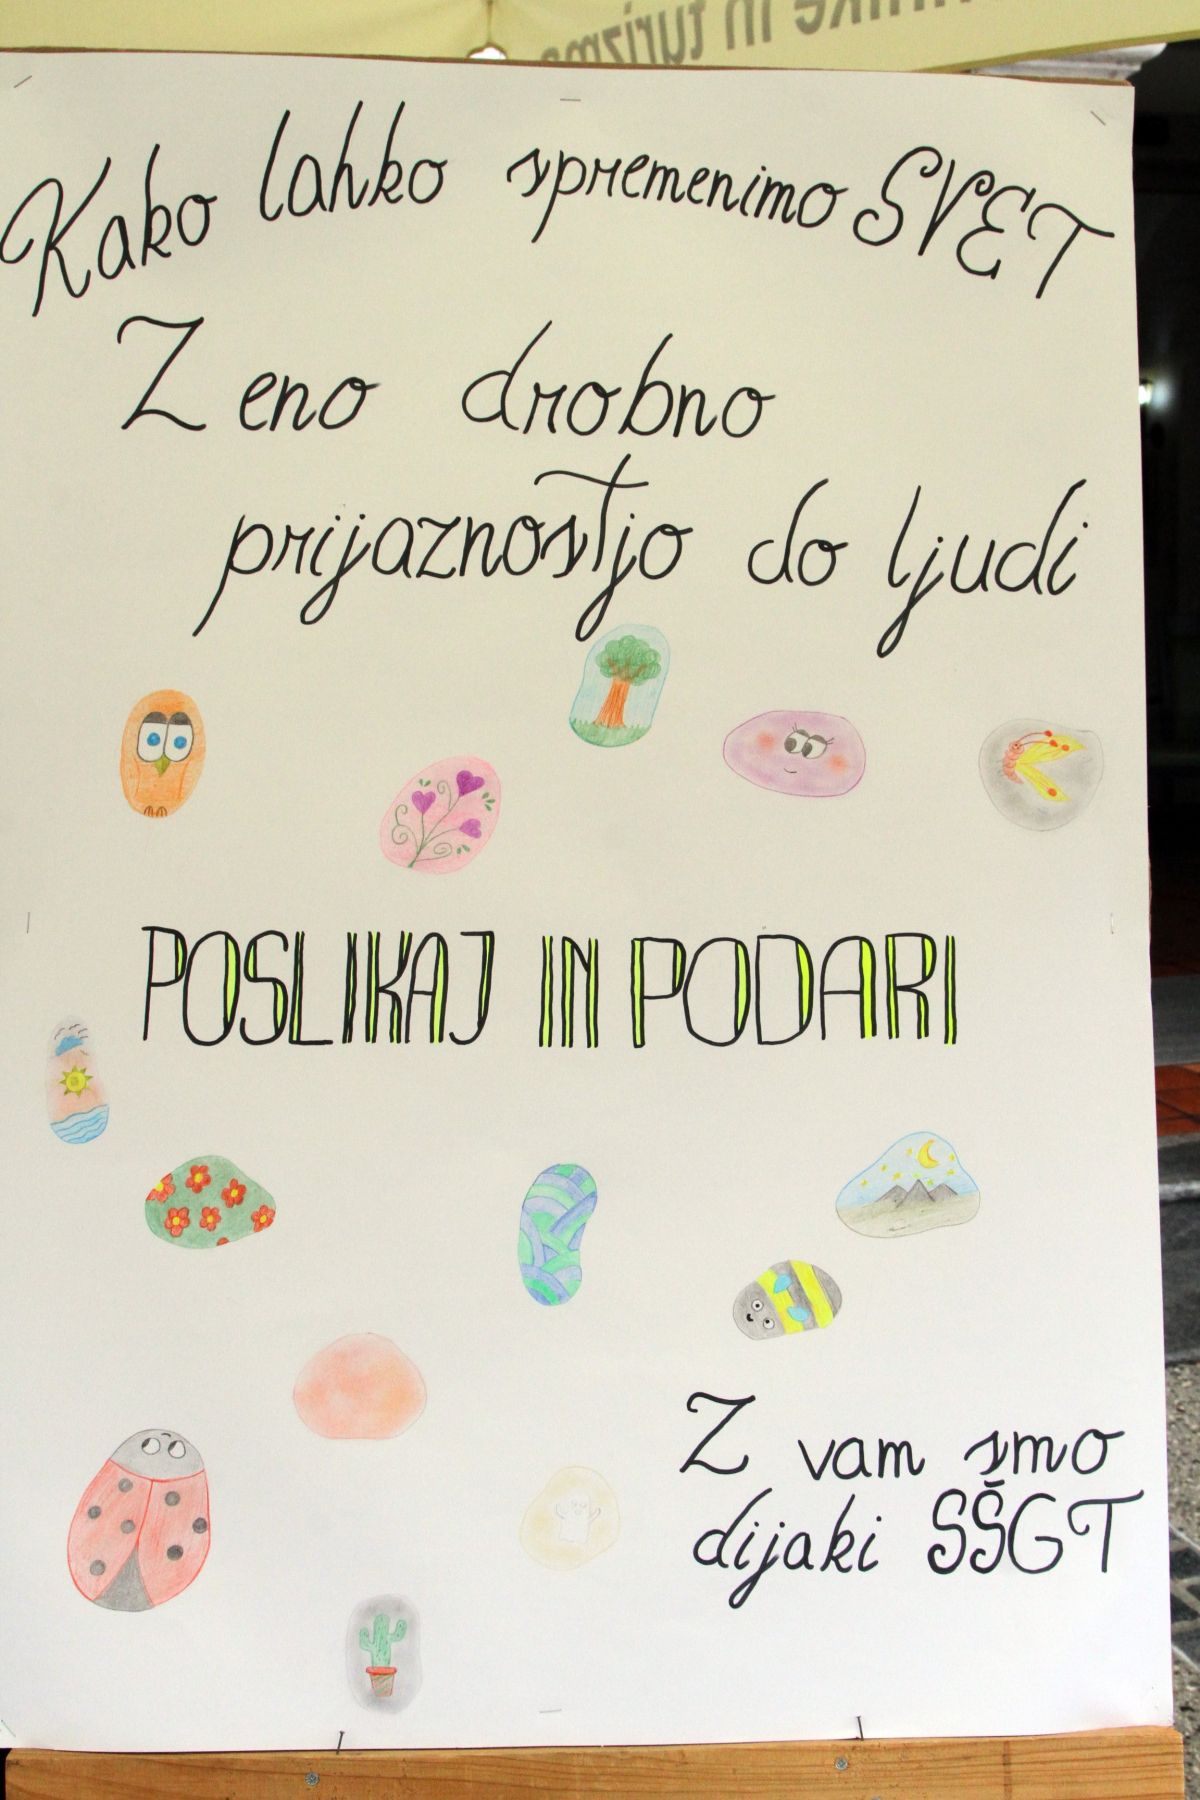 in turizma
Kako lahko spremenimo SVET
Z eno drobno
prijaznostjo do ljudi
POSLIKAJ IN PODARI
Z vam smo
dijaki SŠGT